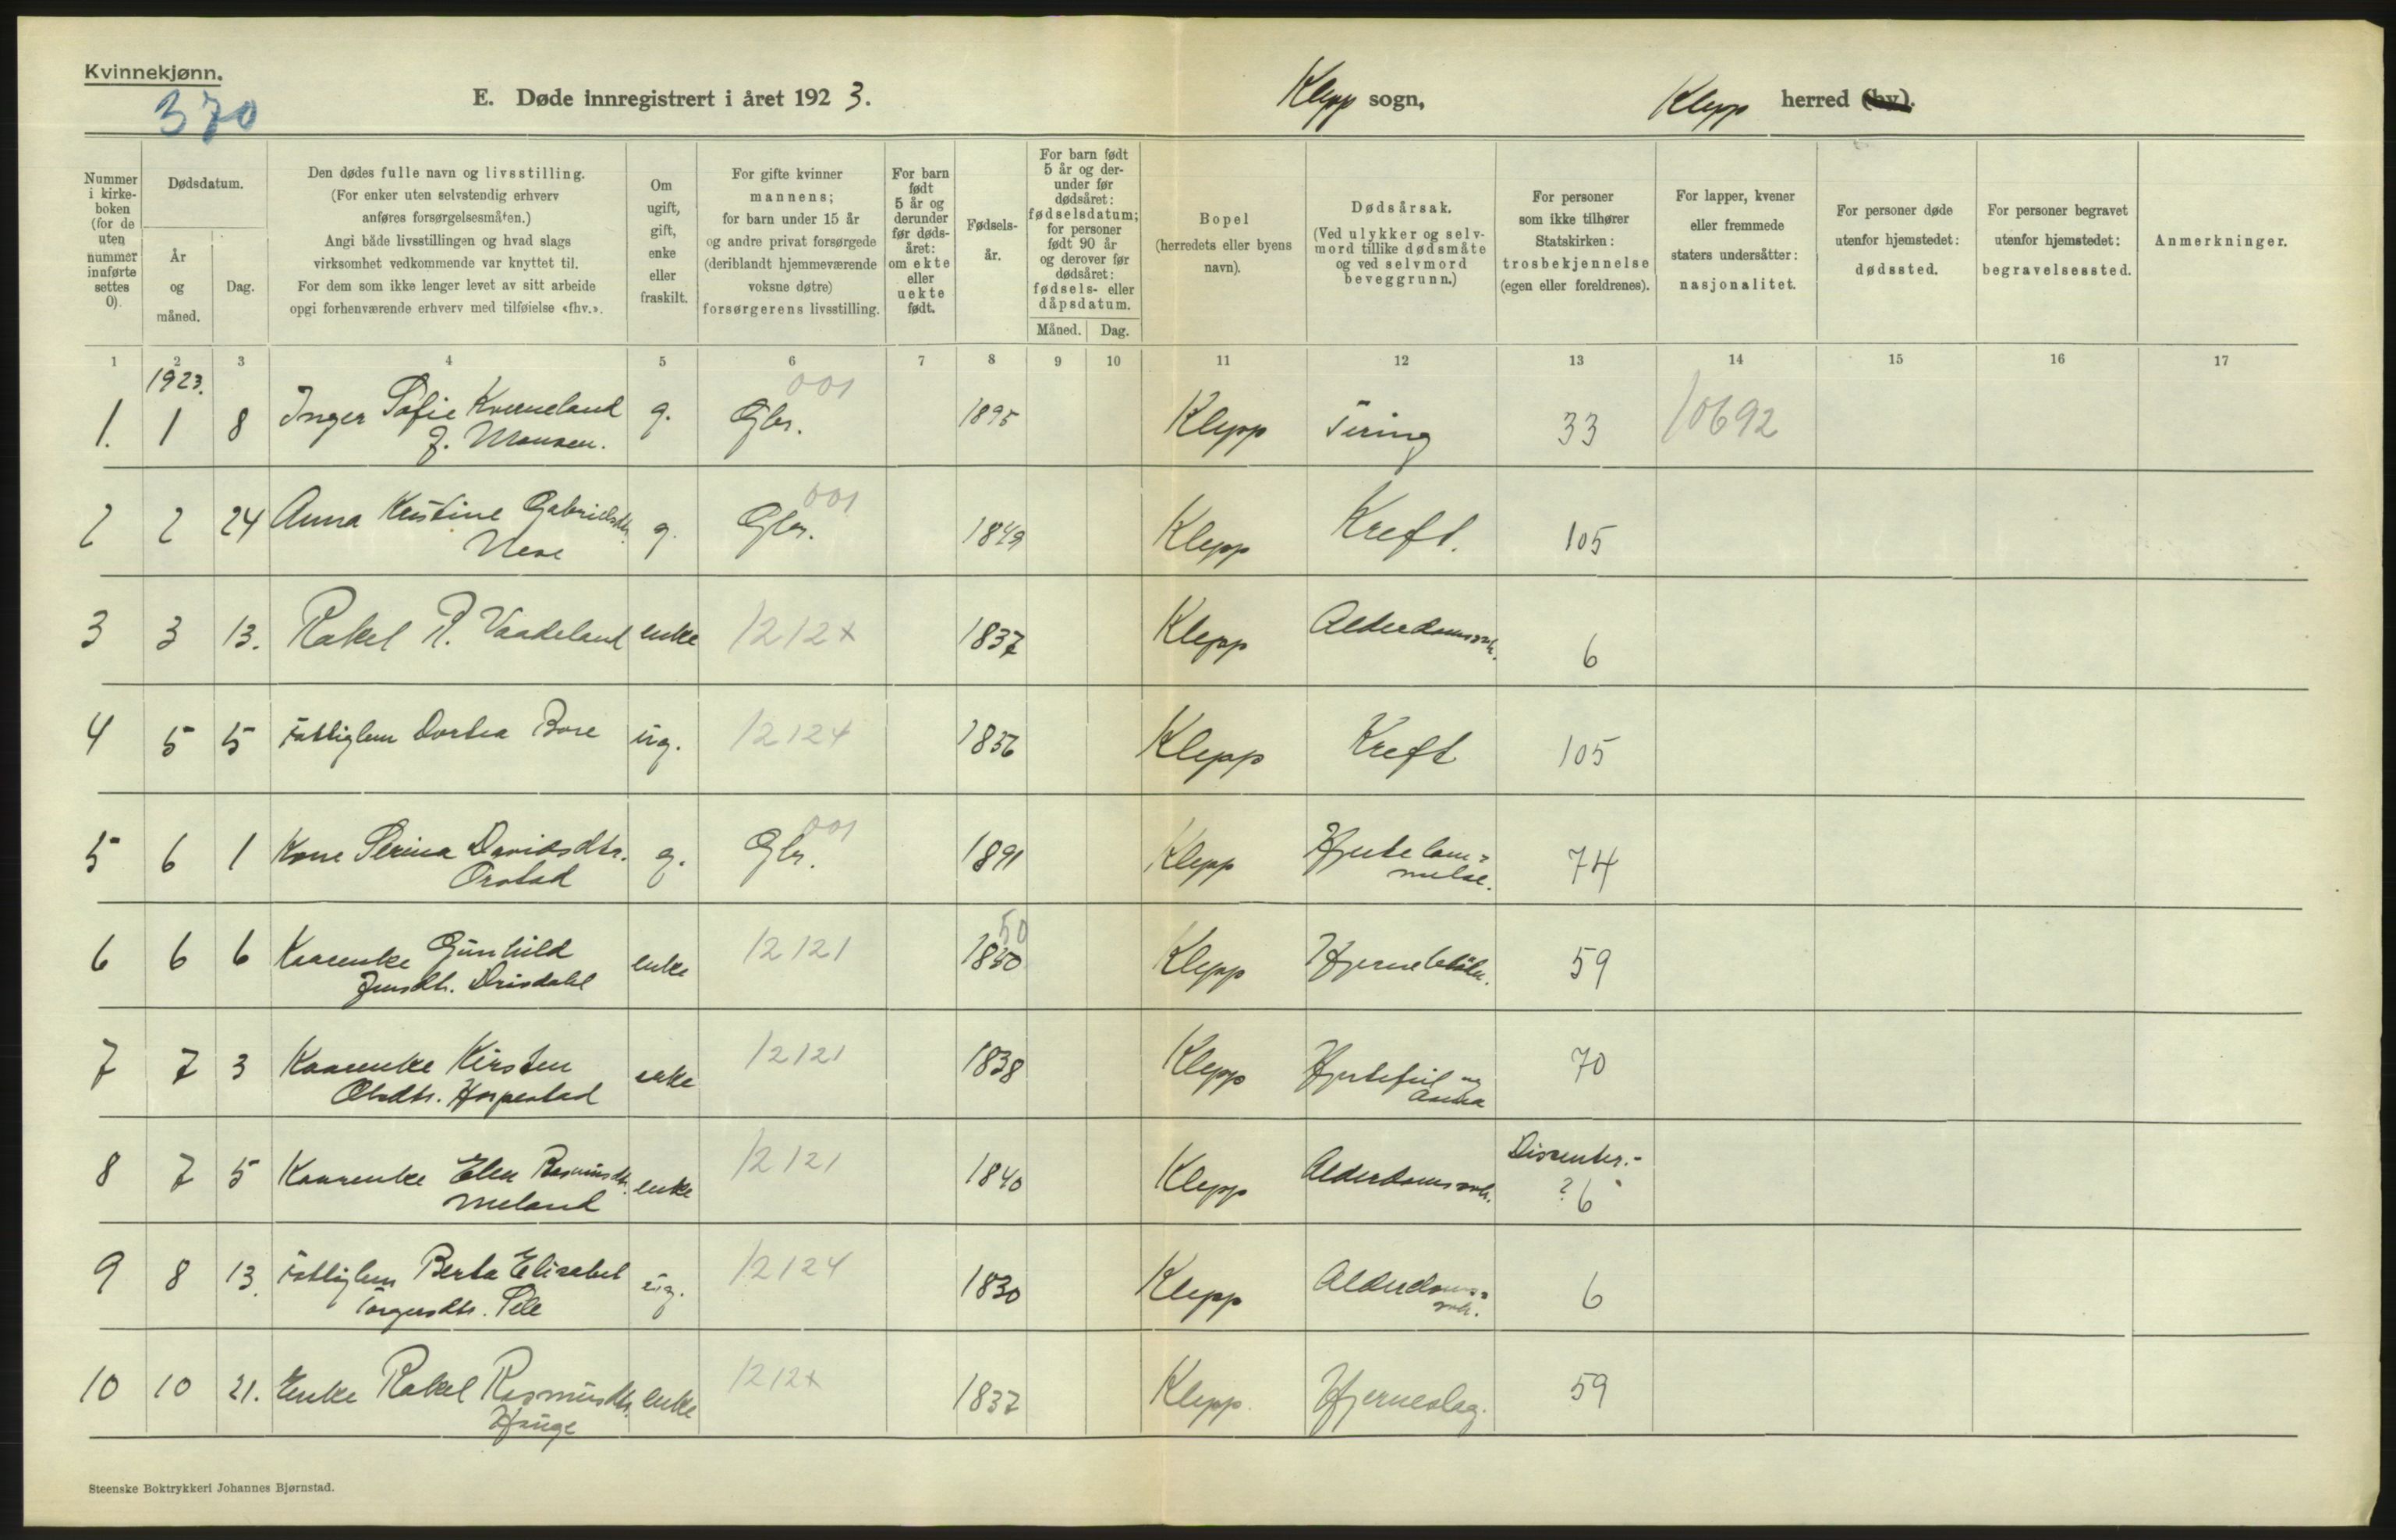 Kvinnekjønn.
370
E. Døde innregistrert i året 1923.
Klepp sogn,
Klepp herred (by).
Nummer i kirkeboken (for de uten nummer innførte settes 0).
Dødsdatum.
År og måned.
Dag.
Den dødes fulle navn og livsstilling.
(For enker uten selvstendig erhverv
anføres forsørgelsesmåten.)
Angi både livsstillingen og hvad slags
virksomhet vedkommende var knyttet til.
For dem som ikke lenger levet av sitt arbeide
opgi forhenværende erhverv med tilføielse «fhv.».
Om ugift, gift, enke eller fraskilt.
For gifte kvinner
mannens;
for barn under 15 år
og andre privat forsørgede
(deriblandt hjemmeværende
voksne døtre)
forsørgerens livsstilling.
For barn født 5 år og derunder før dødsåret: om ekte eller uekte født.
Fødselsår.
For barn født 5 år og derunder før dødsåret: fødselsdatum; for personer født 90 år og derover før dødsåret: fødsels- eller dåpsdatum.
Måned. Dag.
Bopel
(herredets eller byens
navn).
Dødsårsak.
(Ved ulykker og selv-
mord tillike dødsmåte
og ved selvmord
beveggrunn.)
For personer
som ikke tilhører
Statskirken:
trosbekjennelse
(egen eller foreldrenes).
For lapper, kvener
eller fremmede
staters undersåtter:
nasjonalitet.
For personer døde
utenfor hjemstedet:
dødssted.
For personer begravet
utenfor hjemstedet:
begravelsessted.
Anmerkninger.
1 2 3 4 5 6 7 8 9 10 11 12 13 14 15 16 17
1923.
1. 1 8 Inger Sofie Kverneland g. Gbr. 001 1895 Klepp Tæring 33 10692
f. Monsen.
2 2 24 Anna Kristine Gabrielsdtr. g. Gbr. 001 1849 Klepp Kreft. 105
3 3 13. Rakel R. Vaadeland enke 1212x 1837 Klepp Alderdomssvk. 6
4 5 5 Fattiglem Dortea Bore ug. 12124 1836 Klepp Kreft 105
5 6 1 Kone Serina Davidsdtr. g. Gbr. 001 1891 Klepp Hjertelam-
Orstad melse. 74
6 6 6 Kaarenke Gunhild enke 12121 1850 50 Klepp 59
Jensdtr. Orisdahl
7 7 3 Kaarenke Kirsten enke 12121 1838 Klepp Hjertefeil og 70
Olsdtr. Horpestad
8 7 5 Kaarenke Elen Rasmusdtr. enke 12121 1840 Klepp Alderdomssvk. Dissenter.-
Meland ? 6
9 8 13. Fattiglem Berta Elisabet ug. 12124 1830 Klepp Alderdoms-
Torgersdtr. Pele svk. 6
10 10 21. Enke Rakel Rasmusdtr. enke 1212x 1837 Klepp. Hjerneslag. 59
Hauge
Steenske Boktrykkeri Johannes Bjørnstad.